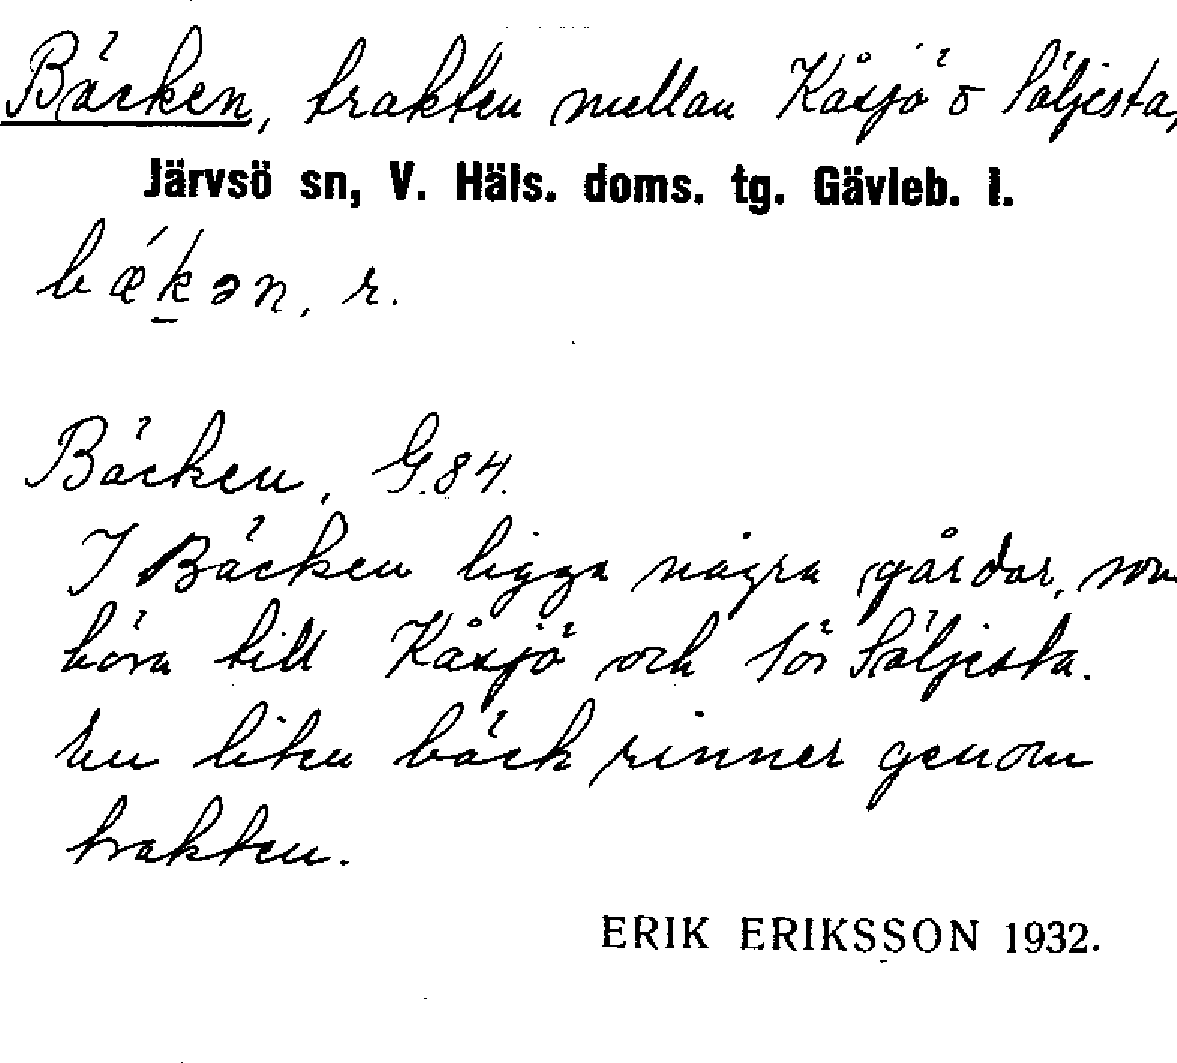 Bäcken, trakten mellan Kåsjö o Säljesta,
Järvsö sn, V. Häls. doms. tg. Gävleb. l.
bǽk̲ən, r.
Bäcken, G.84.
I Bäcken ligga några gårdar, som
höra till Kåsjö och för Säljesta.
En liten bäck rinner genom
trakten.
ERIK ERIKSSON 1932.